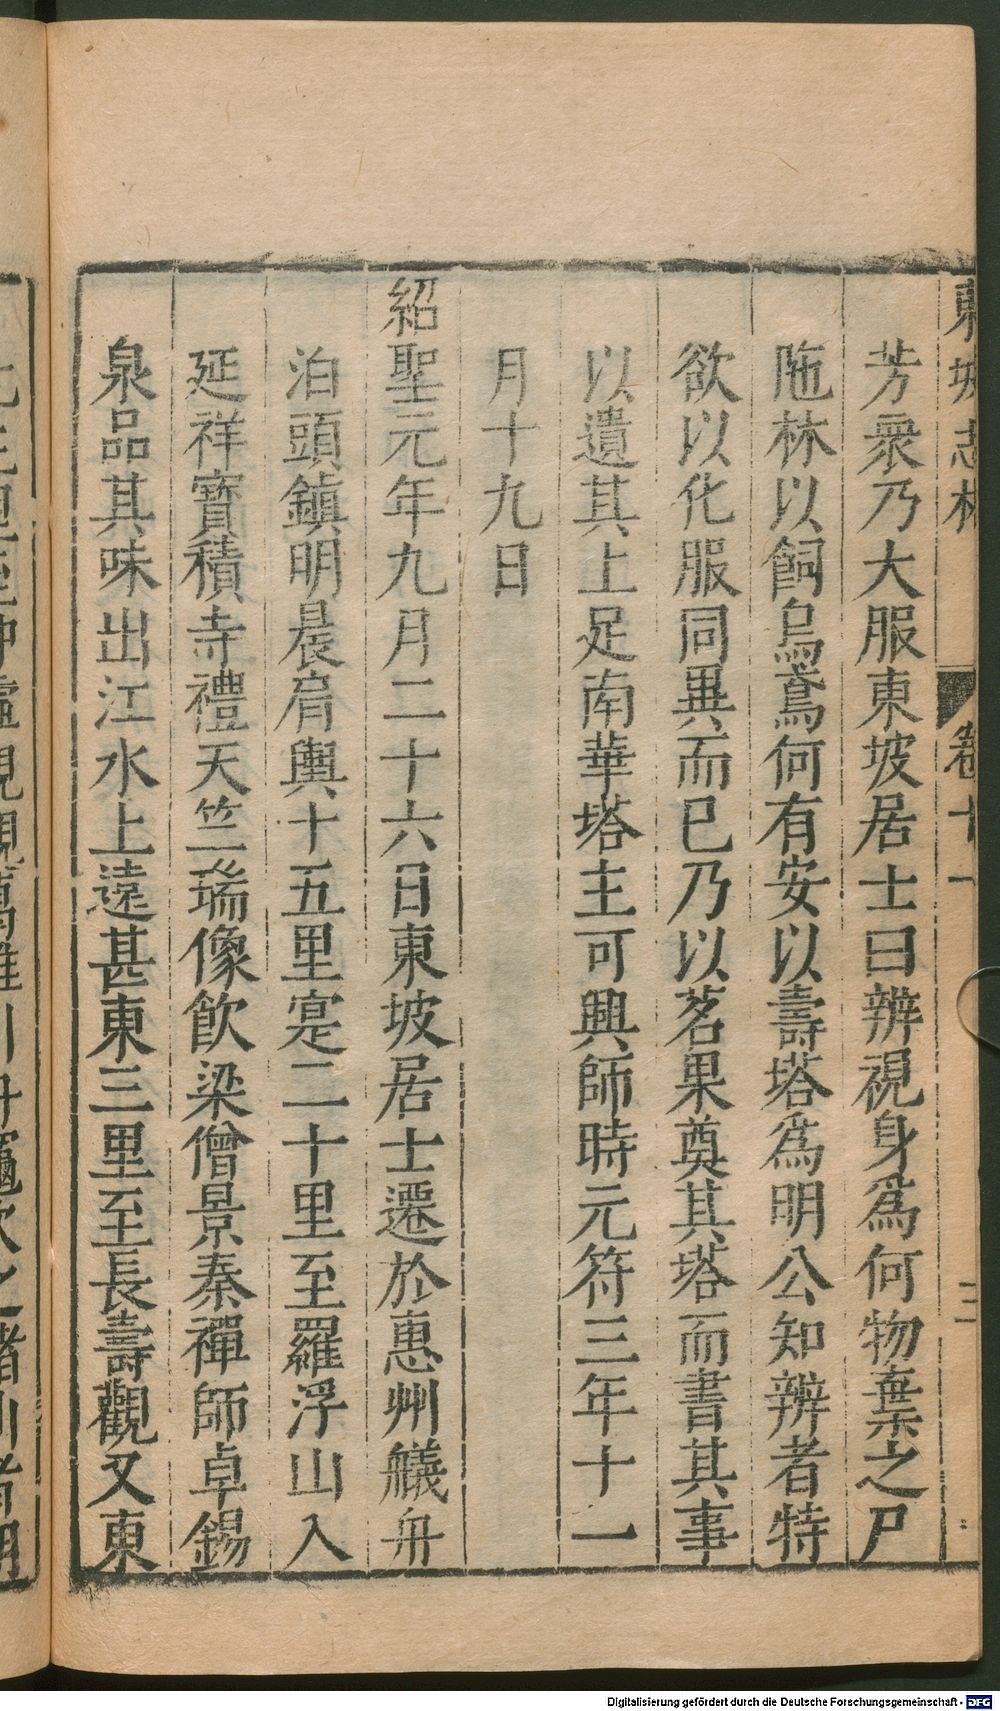 東坡志林 卷十一 二
芳衆乃大服東坡居士曰辨視身爲何物棄之尸
陁林以飼烏鳶何有安以壽塔爲明公知辨者特
欲以化服同異而已乃以茗果奠其塔而書其事
以遺其上足南華塔主可興師時元符三年十一
月十九日
紹聖元年九月二十六日東坡居士遷於惠州艤舟
泊頭鎮明晨肩輿十五里寔二十里至羅浮山入
延祥寶積寺禮天竺瑞像飲梁僧景泰禪師卓錫
泉品其味出江水上遠甚東三里至長壽觀又東
Digitalisierung gefördert durch die Deutsche Forschungsgemeinschaft - DFG